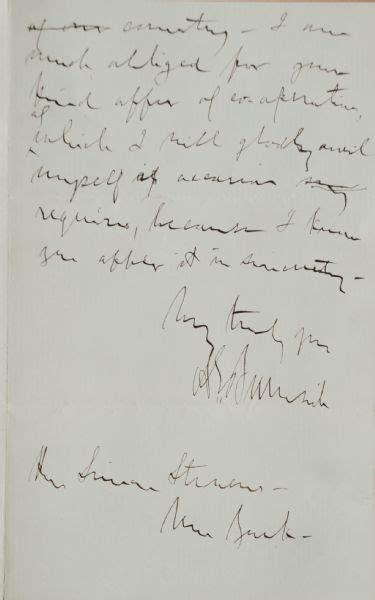 of our country – I am
much obliged for your
kind offer of cooperation,
of
which I will gladly avail
myself if occasion
requires, because I know
you offer it in sincerity –
Very truly yours
A E Burnside
Hon Simon Stevens –
New York –